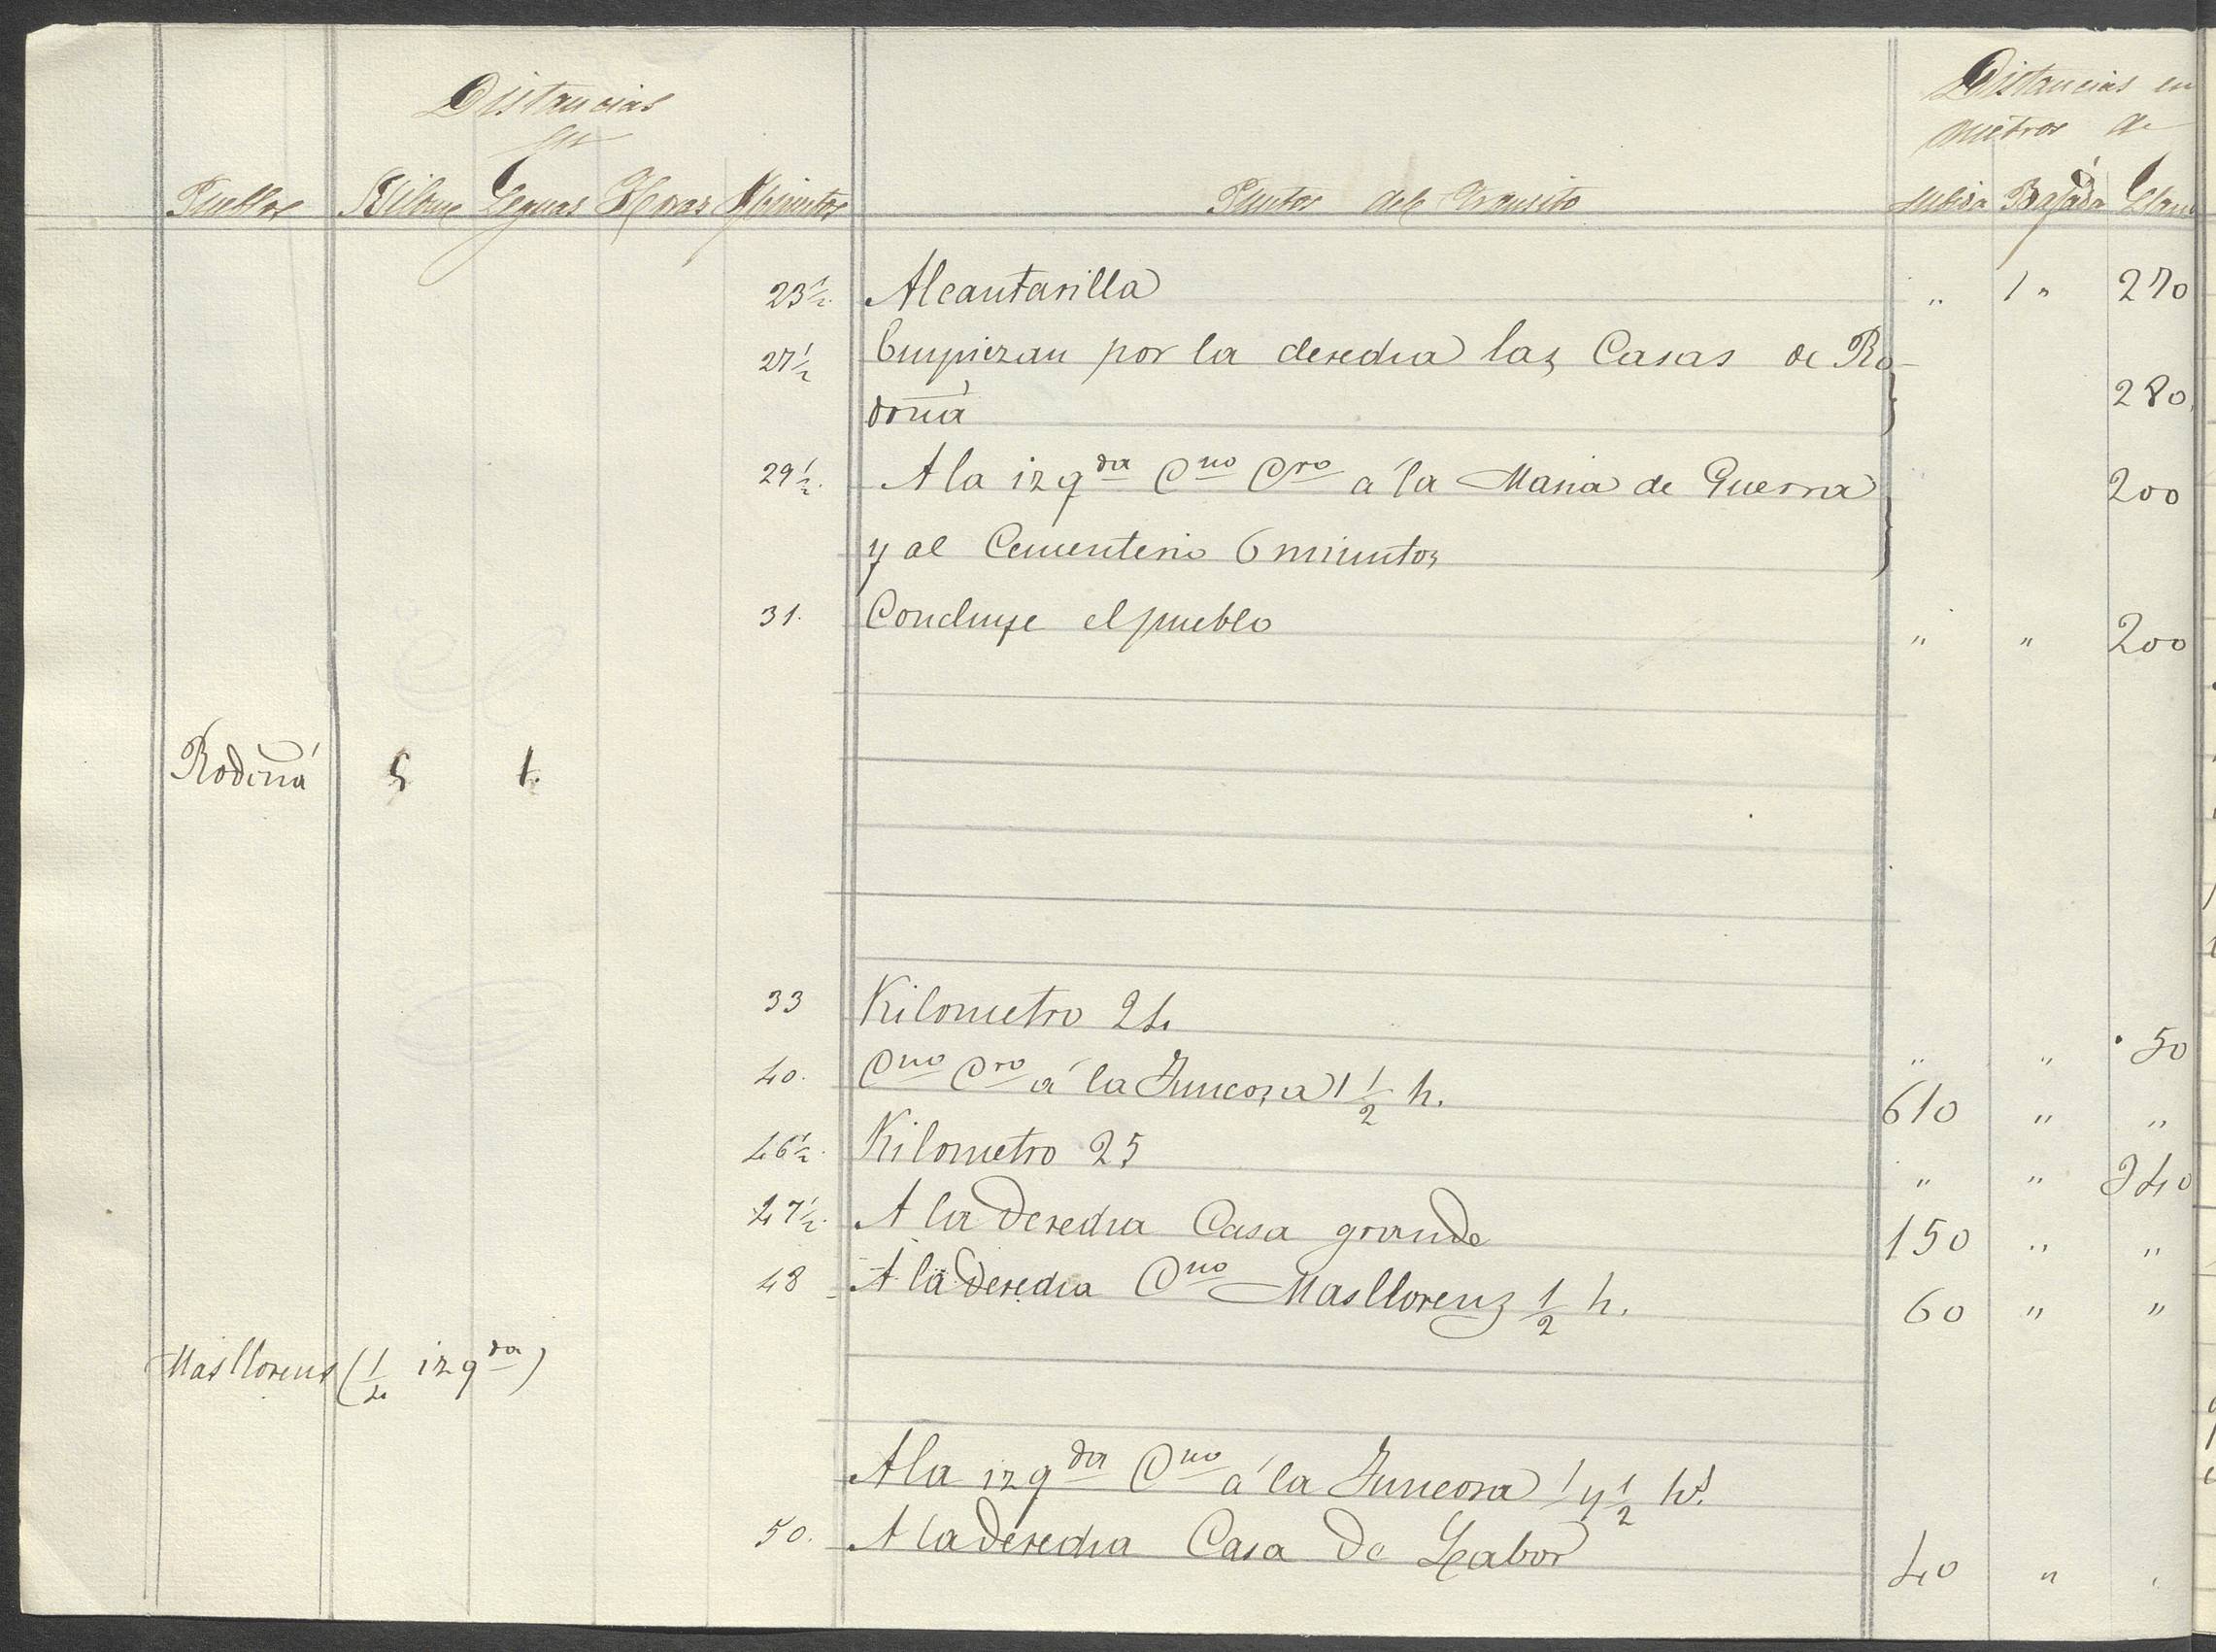 Distancias
en
Distancias en
metros de
Pueblos Kilome Leguas Horas Minutos Puntos del Transito subida Bajada Llano
23 1/2. Alcantarilla " 1 " 270
27 1/2 Empiezan por la derecha las Casas de Ro-
doñá 280
29 1/2. A la izq.da C.no C.ro a la Maria de Guerra 200
y al Cementerio 6 minutos
31. Concluye el pueblo " " 200
Rodoñá 5 1.
33 Kilometro 24 " " 50
40. C.no C.ro á la Juncosa 1 1/2 h. 610 " "
46 1/2. Kilometro 25 " " 340
47 1/2. A la derecha Casa grande 150 " "
48 A la derecha C.no Masllorens 1/2 h. 60 " "
Masllorens (1/2 izq.da)
A la izq.da C.no á la Juncosa 1 y 1/2 h.s
50. A la derecha Casa de Labor 40 "